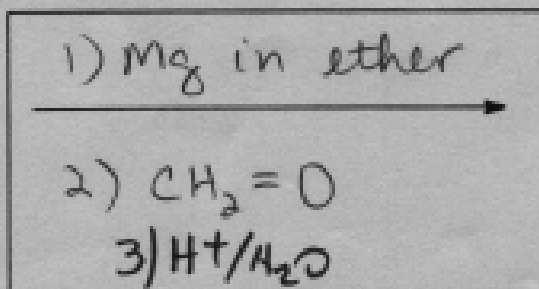 1) Mg in ether
2) CH₂ = O
3) H+/H₂O